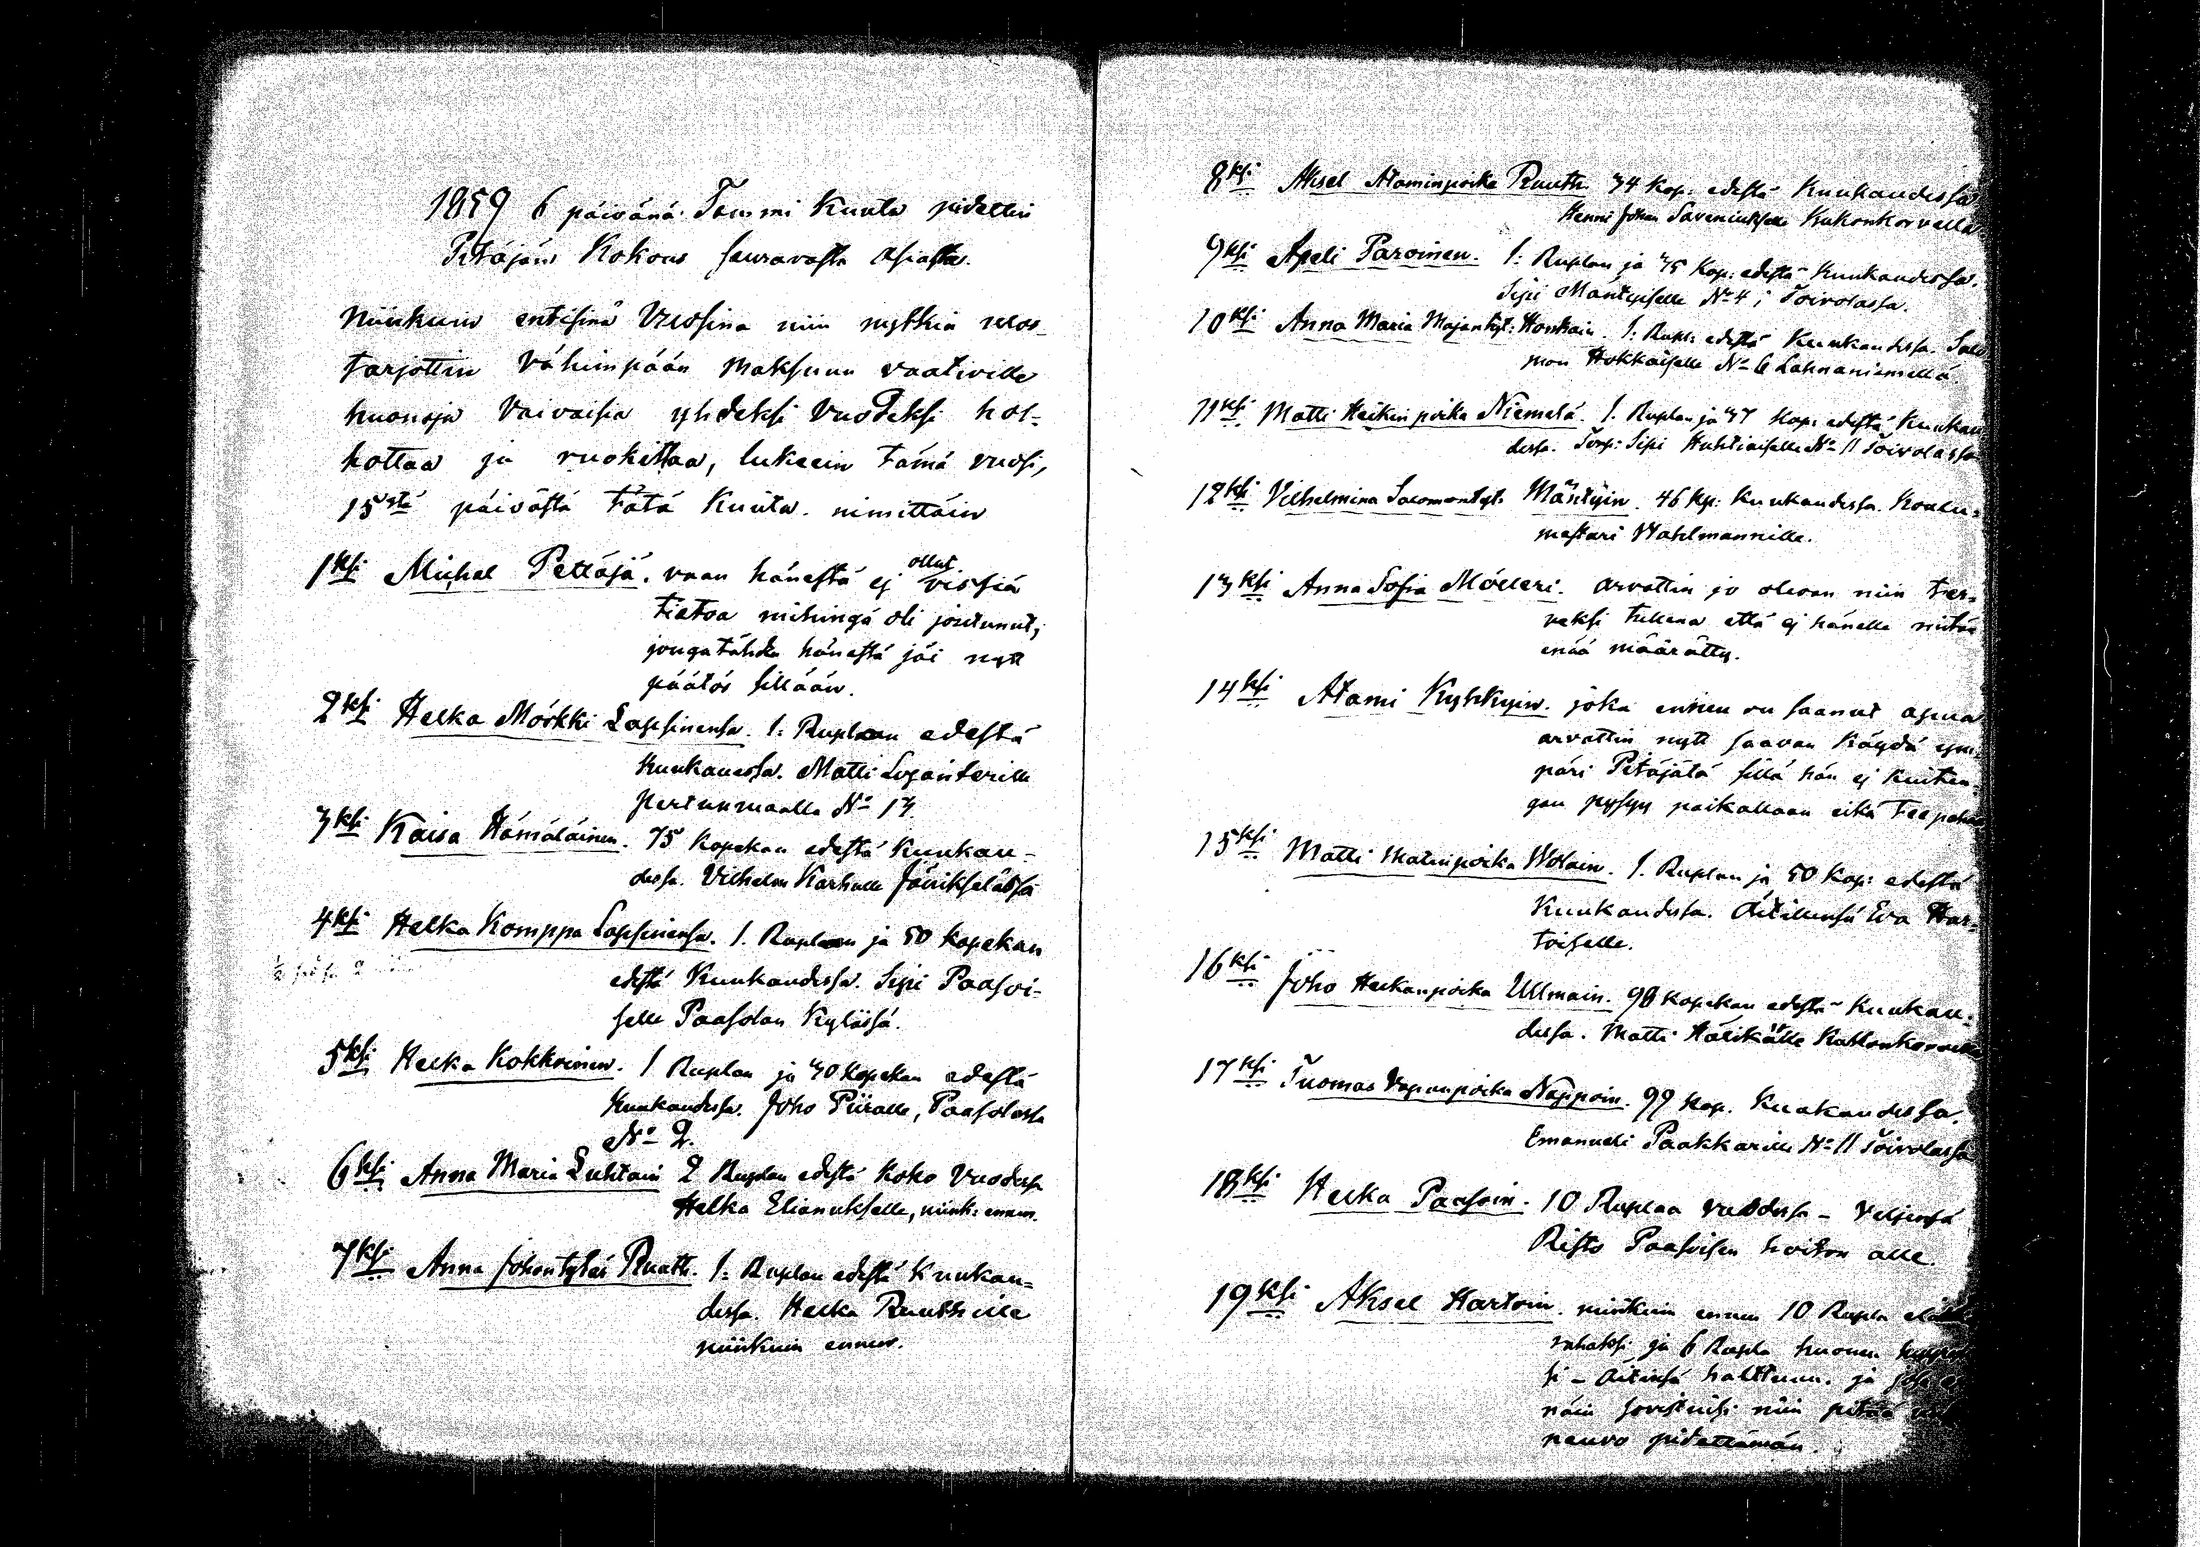 1859 6 päivänä Tammi Kuuta pidettin
Pitäjän Kokous seuravasta Asiasta.
Niinkuin entisinä Vuosina niin nytkin ulos-
tarjottin vähimpään Maksuun vaativille
huonoja Vaivaisia yhdeksi Vuodeksi hol-
hottaa ja ruokittaa, lukeein tämä vuosi,
15stä päivästä tätä Kuuta. nimittäin
1ksi Michel Pettäjä. vaan hänestä ej ollut vissiä
tietoa mihingä oli joutunut,
jongatähden hänestä jäi nytt
päätös sillään.
2ksi Helka Mörkki Lapsinensa. 1: Ruplaan edestä
Kuukauessa. Matti Liganterille
Pertunmaalla No 13
3ksi Kaisa Hämäläinen. 75 Kopekan edestä Kuukau-
dessa. Vilhelm Karhulle Jänikselässä
4ksi Helka Komppa Lapsinensa. 1. Ruplaan ja 50 kopekan
edestä Kuukaudessa. Sipi Paasoi-
selle Paasolan Kylässä.
5ksi Helka Kokkoinen. 1 Ruplan ja 30 Kopekan edestä
Kuukaudessa. Joho Piiralle, Paasolassa
No 2.
6ksi Anna Maria Luhtain 2 Ruplan edestä Koko Vuodessa
Helka Elianukselle, niink: ennen.
7ksi Anna Johontytär Ruuth. 1: Ruplan edestä Kuukau=
dessa. Helka Ruuthille
niinkuin ennen.
8ksi Aksel Ataminpoika Ruuth. 34 Kop: edestä Kuukaudessa
Henni Johan Saveniukselle Kukonkorvella
9ksi Apeli Paroinen. 1: Ruplan ja 35 Kop: edestä Kuukaudessa.
Sipi Mäntyiselle No 4 i Toivolassa.
10ksi Anna Maria Majantyt: Honkain. 1: Rupl: edestä Kuukaudessa. Salo
mon Hokkaiselle No 6 Lahnaniemellä.
11ksi Matti Heikinpoika Niemelä. 1. Ruplan ja 37 Kop: edestä Kuukau
dessa. Torp: Sipi Huhtiaiselle No 11 Toivolassa
12ksi Vilhelmina Salomontyt: Mäntyin. 46 Kp: Kuukaudessa. Koulu=
mestari Wahlmannille.
13ksi Anna Sofia Mölleri. arvattin jo olevan niin ter=
veksi tullena että ej hänelle mitän
enää määrätty.
14ksi Atami Kyhkyin. joka ennen on saanut apua
arvattin nytt saavan Käydä ym
päri Pitäjätä sillä hän ej kuiten=
gan pysyy paikallaan eikä tee pahaa
15ksi Matti Matinpoika Wolain. 1. Ruplan ja 50 Kop: edestä
Kuukaudessa. Äitillensä Eva Har=
toiselle.
16ksi Joho Heikanpoika Ullmain. 98 kopekan edestä Kuukau=
dessa. Matti Hälikälle Kukonkorvella
17ksi Tuomas Vapunpoika Nappoin. 99 Kop. Kuukaudessa.
Emanueli Paakkarille No 11 Toivolassa
18ksi Helka Paasoin. 10 Ruplaa vuodessa - Veljensä
Risto Paasoisen hoiton alle.
19ksi Aksel Hartoin. niinkuin ennen 10 Rupla
rahaksi ja 6 Rupla huonen
si - Äitinsä halttuun. ja jos ej
näin sovistuisi niin pitää
neuvo pidettämän.